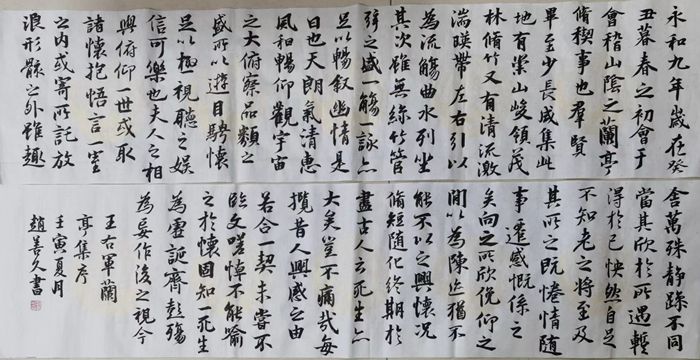 永和九年歲在癸
丑暮春之初會于
會稽山陰之蘭亭
脩稧事也群賢
畢至少長咸集此
地有崇山峻領茂
林脩竹又有清流激
湍暎帶左右引以
為流觴曲水列坐
其次雖無絲竹管
弦之盛一觴一詠亦
足以暢敘幽情是
日也天朗氣清惠
風和暢仰觀宇宙
之大俯察品類之
盛所以遊目騁懷
足以極視聽之娛
信可樂也夫人之相
與俯仰一世或取
諸懷抱悟言一室
之內或寄所託放
浪形骸之外雖趣
舍萬殊靜躁不同
當其欣於所遇蹔
得於己怏然自足
不知老之將至及
其所之既惓情隨
事遷感慨係之
矣向之所欣俛仰之
間以為陳迹猶不
能不以之興懷況
脩短隨化終期於
盡古人云死生亦
大矣豈不痛哉每
攬昔人興感之由
若合一契未嘗不
臨文嗟悼不能喻
之於懷固知一死生
為虛誕齊彭殤
為妄作後之視今
王右軍蘭
亭集序
壬寅夏月
趙善久書